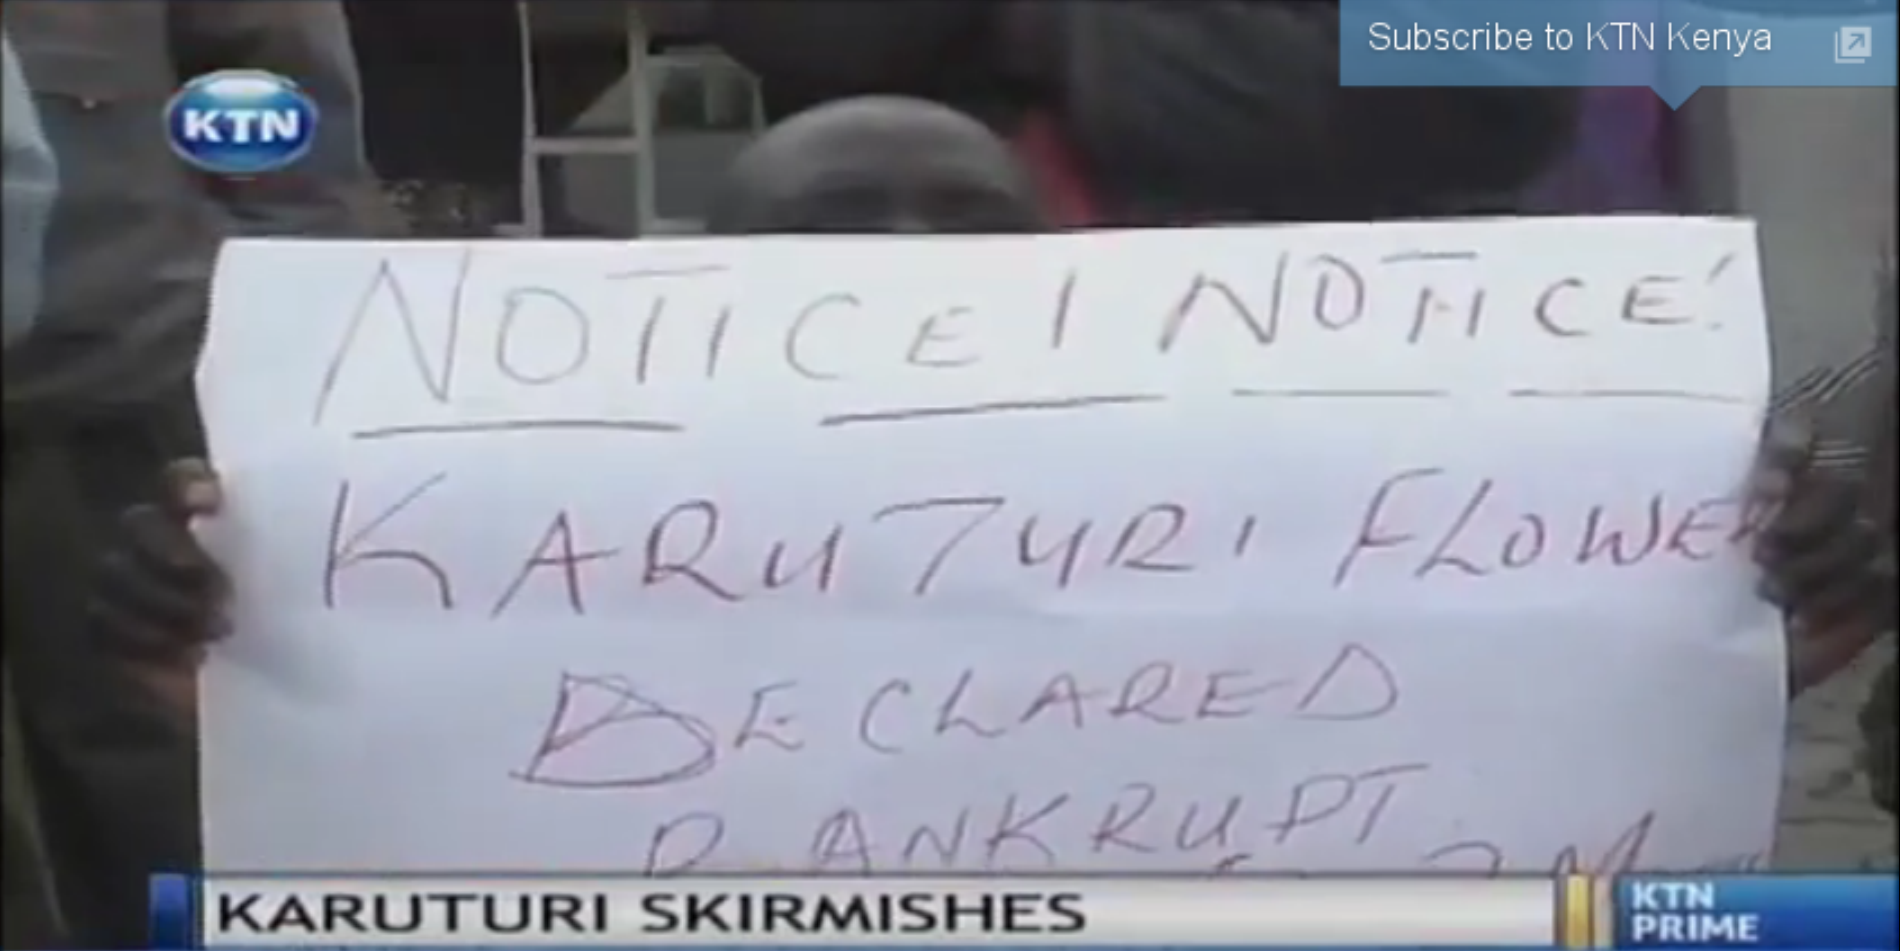 Subscribe to KTN Kenya
KTN
NOTICE! NOTICE!
KARUTURI FLOWER
DECLARED
BANKRUPT
KARUTURI SKIRMISHES
KTN
PRIME